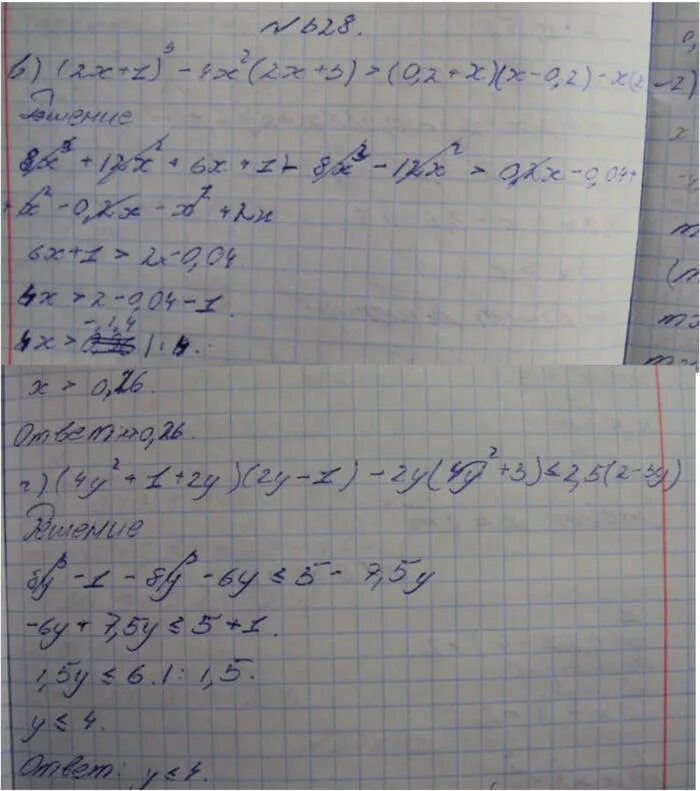 №628.
в) (2x+1)³ - 4x²(2x+3) > (0,2+x)(x-0,2) - x(x-2)
Решение
8x³ + 12x² + 6x + 1 - 8x³ - 12x² > 0,2x - 0,04 +
+ x² - 0,2x - x² + 2x
6x+1 > 2x-0,04
4x > 2-0,04-1.
-1,4
4x > |:4.
x > 0,26
Ответ: x>0,26.
г) (4y²+1+2y)(2y-1) - 2y(4y²+3) ≤ 2,5(2-3y)
Решение
8y³ - 1 - 8y³ - 6y ≤ 5 - 7,5y
-6y + 7,5y ≤ 5+1.
1,5y ≤ 6 |: 1,5.
y ≤ 4.
Ответ: y ≤ 4.